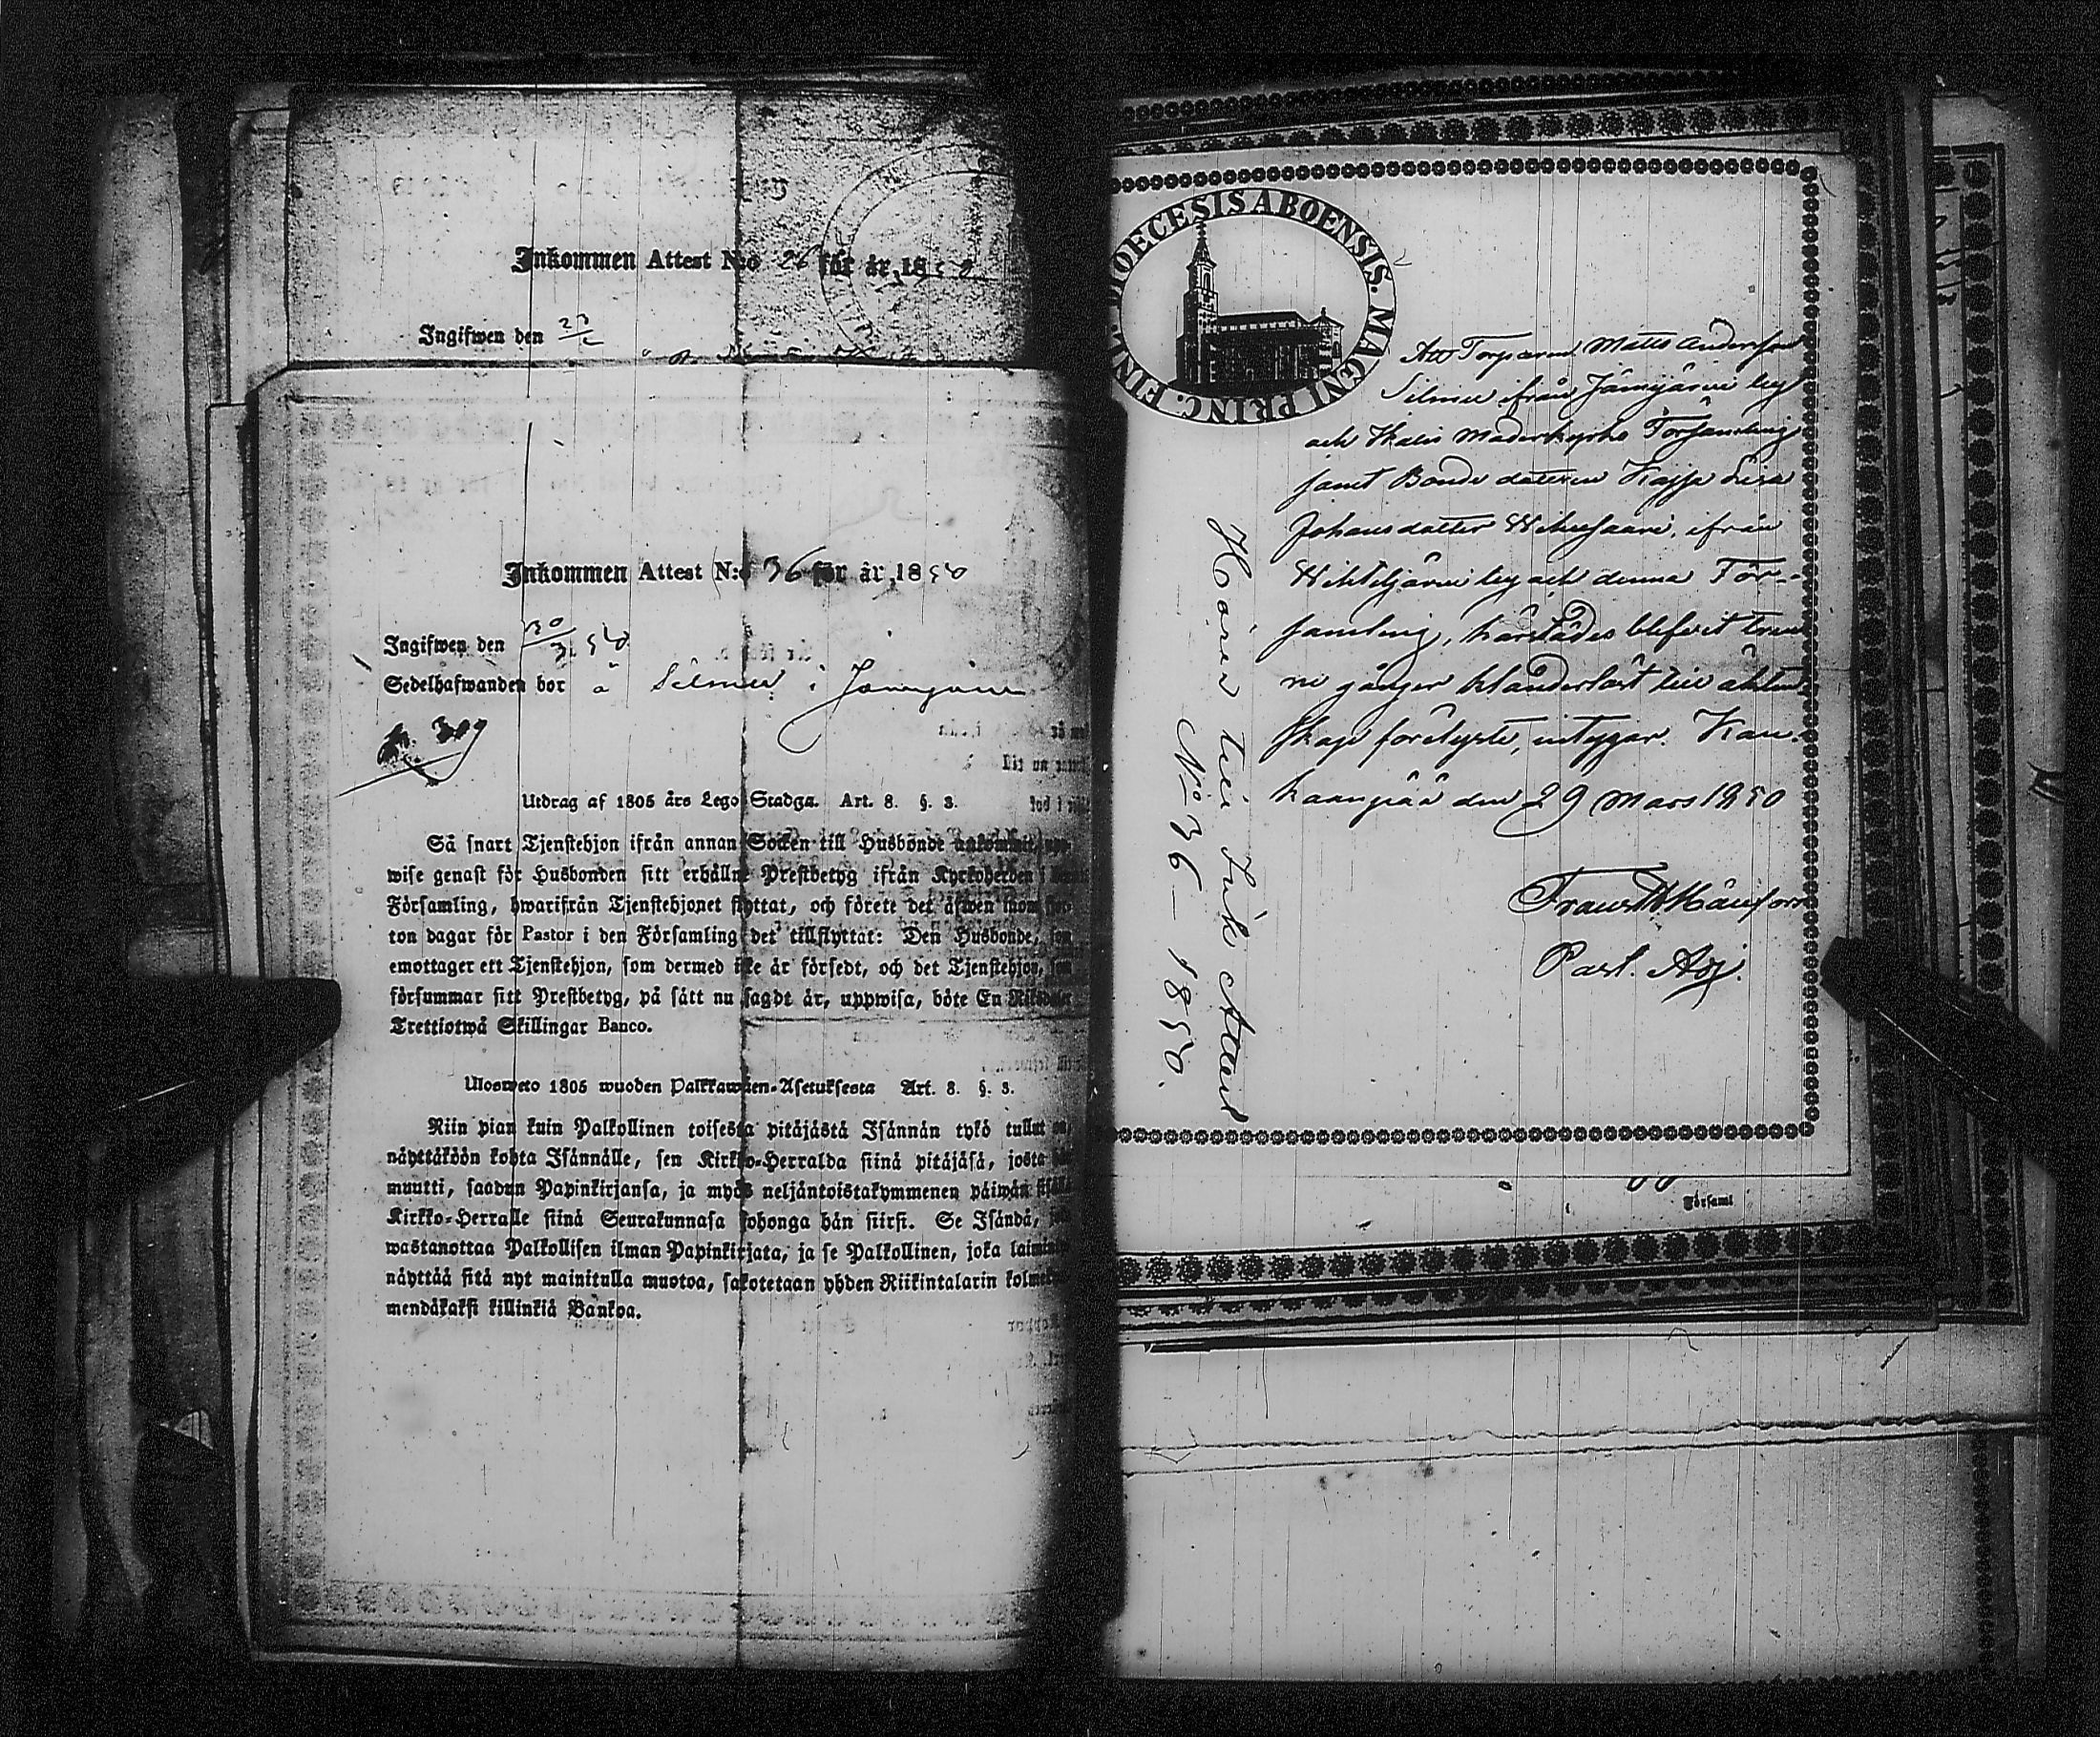 Inkommen Attest N:o 26 för år 1850
Ingifwen den 23/2
Inkommen Attest N:o 36 för år 1850
Ingifwen den 30/3 50
Sedelhafwanden bor å Silmu i Jämijärvi
309
Utdrag af 1805 års Lego-Stadga. Art. 8. §. 3.
Så snart Tjenstehjon ifrån annan Socken till Husbonde ankommit, upp-
wise genast för Husbonden sitt erhållne Prestbetyg ifrån Kyrkoherden i
Församling, hwarifrån Tjenstehjonet flyttat, och förete det äfwen inom
ton dagar för Pastor i den Församling det tillflyttat: Den Husbonde, som
emottager ett Tjenstehjon, som dermed icke är försedt, och det Tjenstehjon, som
försummar sitt Prestbetyg, på sätt nu sagdt är, uppwisa, böte En Riksdaler
Trettiotwå Skillingar Banco.
Uloswето 1805 wuoden Palkkawäen-Asetuksesta Art. 8. §. 3.
Niin pian kuin Palkollinen toisesta pitäjästä Isännän tykö tullut on,
näyttäköön kohta Isännälle, sen Kirkko-Herralda siinä pitäjäsä, josta hän
muutti, saadun Papinkirjansa, ja myös neljäntoistakymmenen päiwän sisällä
Kirkko-Herralle siinä Seurakunnasa johonga hän siirsi. Se Isändä, joka
wastanottaa Palkollisen ilman Papinkirjata, ja se Palkollinen, joka
näyttää sitä nyt mainitulla muotoa, sakotetaan yhden Riikintalarin
mendäkaksi killinkiä Bankoa.
FINL. DIOECESIS ABOENSIS. MAGNI PRINC.
Att Torparen Matts Andersson
Silmu ifrån Jämijärvi by
och Ikalis Moderkyrko Församling
samt Bonde dottren Kajsa Lisa
Johansdotter Wihusaari, ifrån
Wihteljärvi by och denna För-
samling, härstädes blifvit tren-
ne gånger klanderlöst till äkten
skap förelyste, intygar. Kan-
kaanpää den 29 Mars 1850
Past. Adj.
Hörer till Ink Attest
No 36 – 1850.
Församl